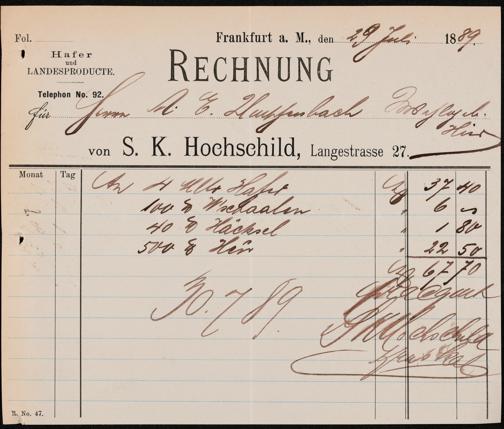 Fol.
Frankfurt a. M., den 29 Juli 1889.
Hafer
und
LANDESPRODUCTE.
RECHNUNG
Telephon No. 92.
für Herrn A. E.
Hier
von S. K. Hochschild, Langestrasse 27.
Monat Tag
An 4 Hafer 37 40
100 " 6 "
40 " Häcksel " 1 80
500 " Heu " 22 50
67 70
30.7 89.
SKHochschild
R. No. 47.